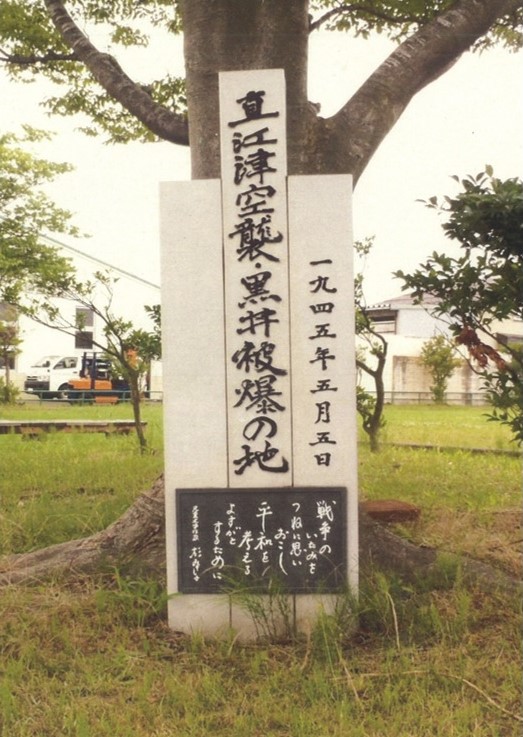 直江津空襲・黒井被爆の地
一九四五年五月五日
戦争の
いたみを
つねに思い
おこし
平和を
考える
よすがと
するために